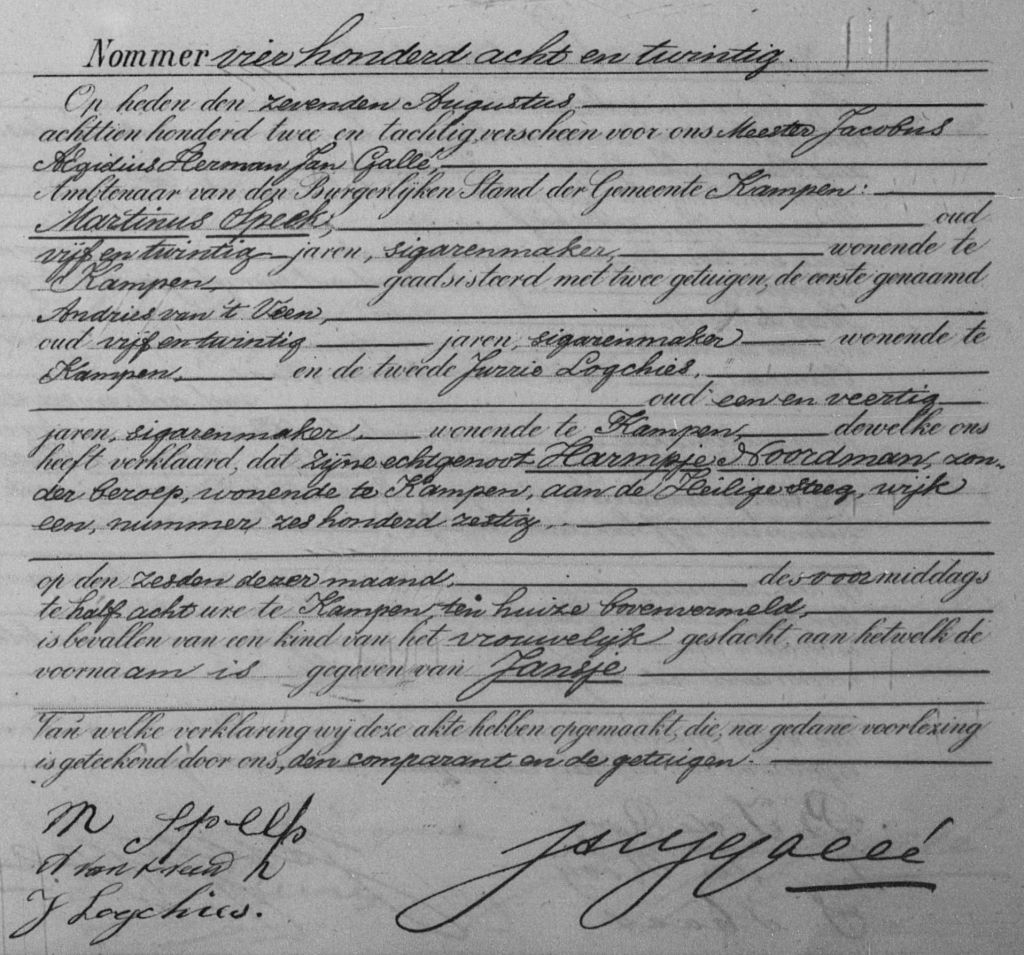 Nommer vier honderd acht en twintig.
Op heden den zevenden Augustus
achttien honderd twee en tachtig, verscheen voor ons Meester Jacobus
Ægidius Herman Jan Gallé,
Ambtenaar van den Burgerlijken Stand der Gemeente Kampen:
Martinus Speek, oud
vijf en twintig jaren, sigarenmaker, wonende te
Kampen, geadsisteerd met twee getuigen, de eerste genaamd
Andries van 't Veen,
oud vijf en twintig jaren, sigarenmaker wonende te
Kampen, en de tweede Jurrie Logchies,
oud een en veertig
jaren, sigarenmaker, wonende te Kampen, dewelke ons
heeft verklaard, dat zijne echtgenoot Harmpje Noordman, zon-
der beroep, wonende te Kampen, aan de Heilige steeg, wijk
een, nummer zes honderd zestig,
op den zesden dezer maand, des voormiddags
te half acht ure te Kampen ten huize bovenvermeld,
is bevallen van een kind van het vrouwelijk geslacht, aan hetwelk de
voornaam is gegeven van Jansje
Van welke verklaring wij deze akte hebben opgemaakt, die, na gedane voorlezing
is geteekend door ons, den comparant en de getuigen.
M
J Logchies.